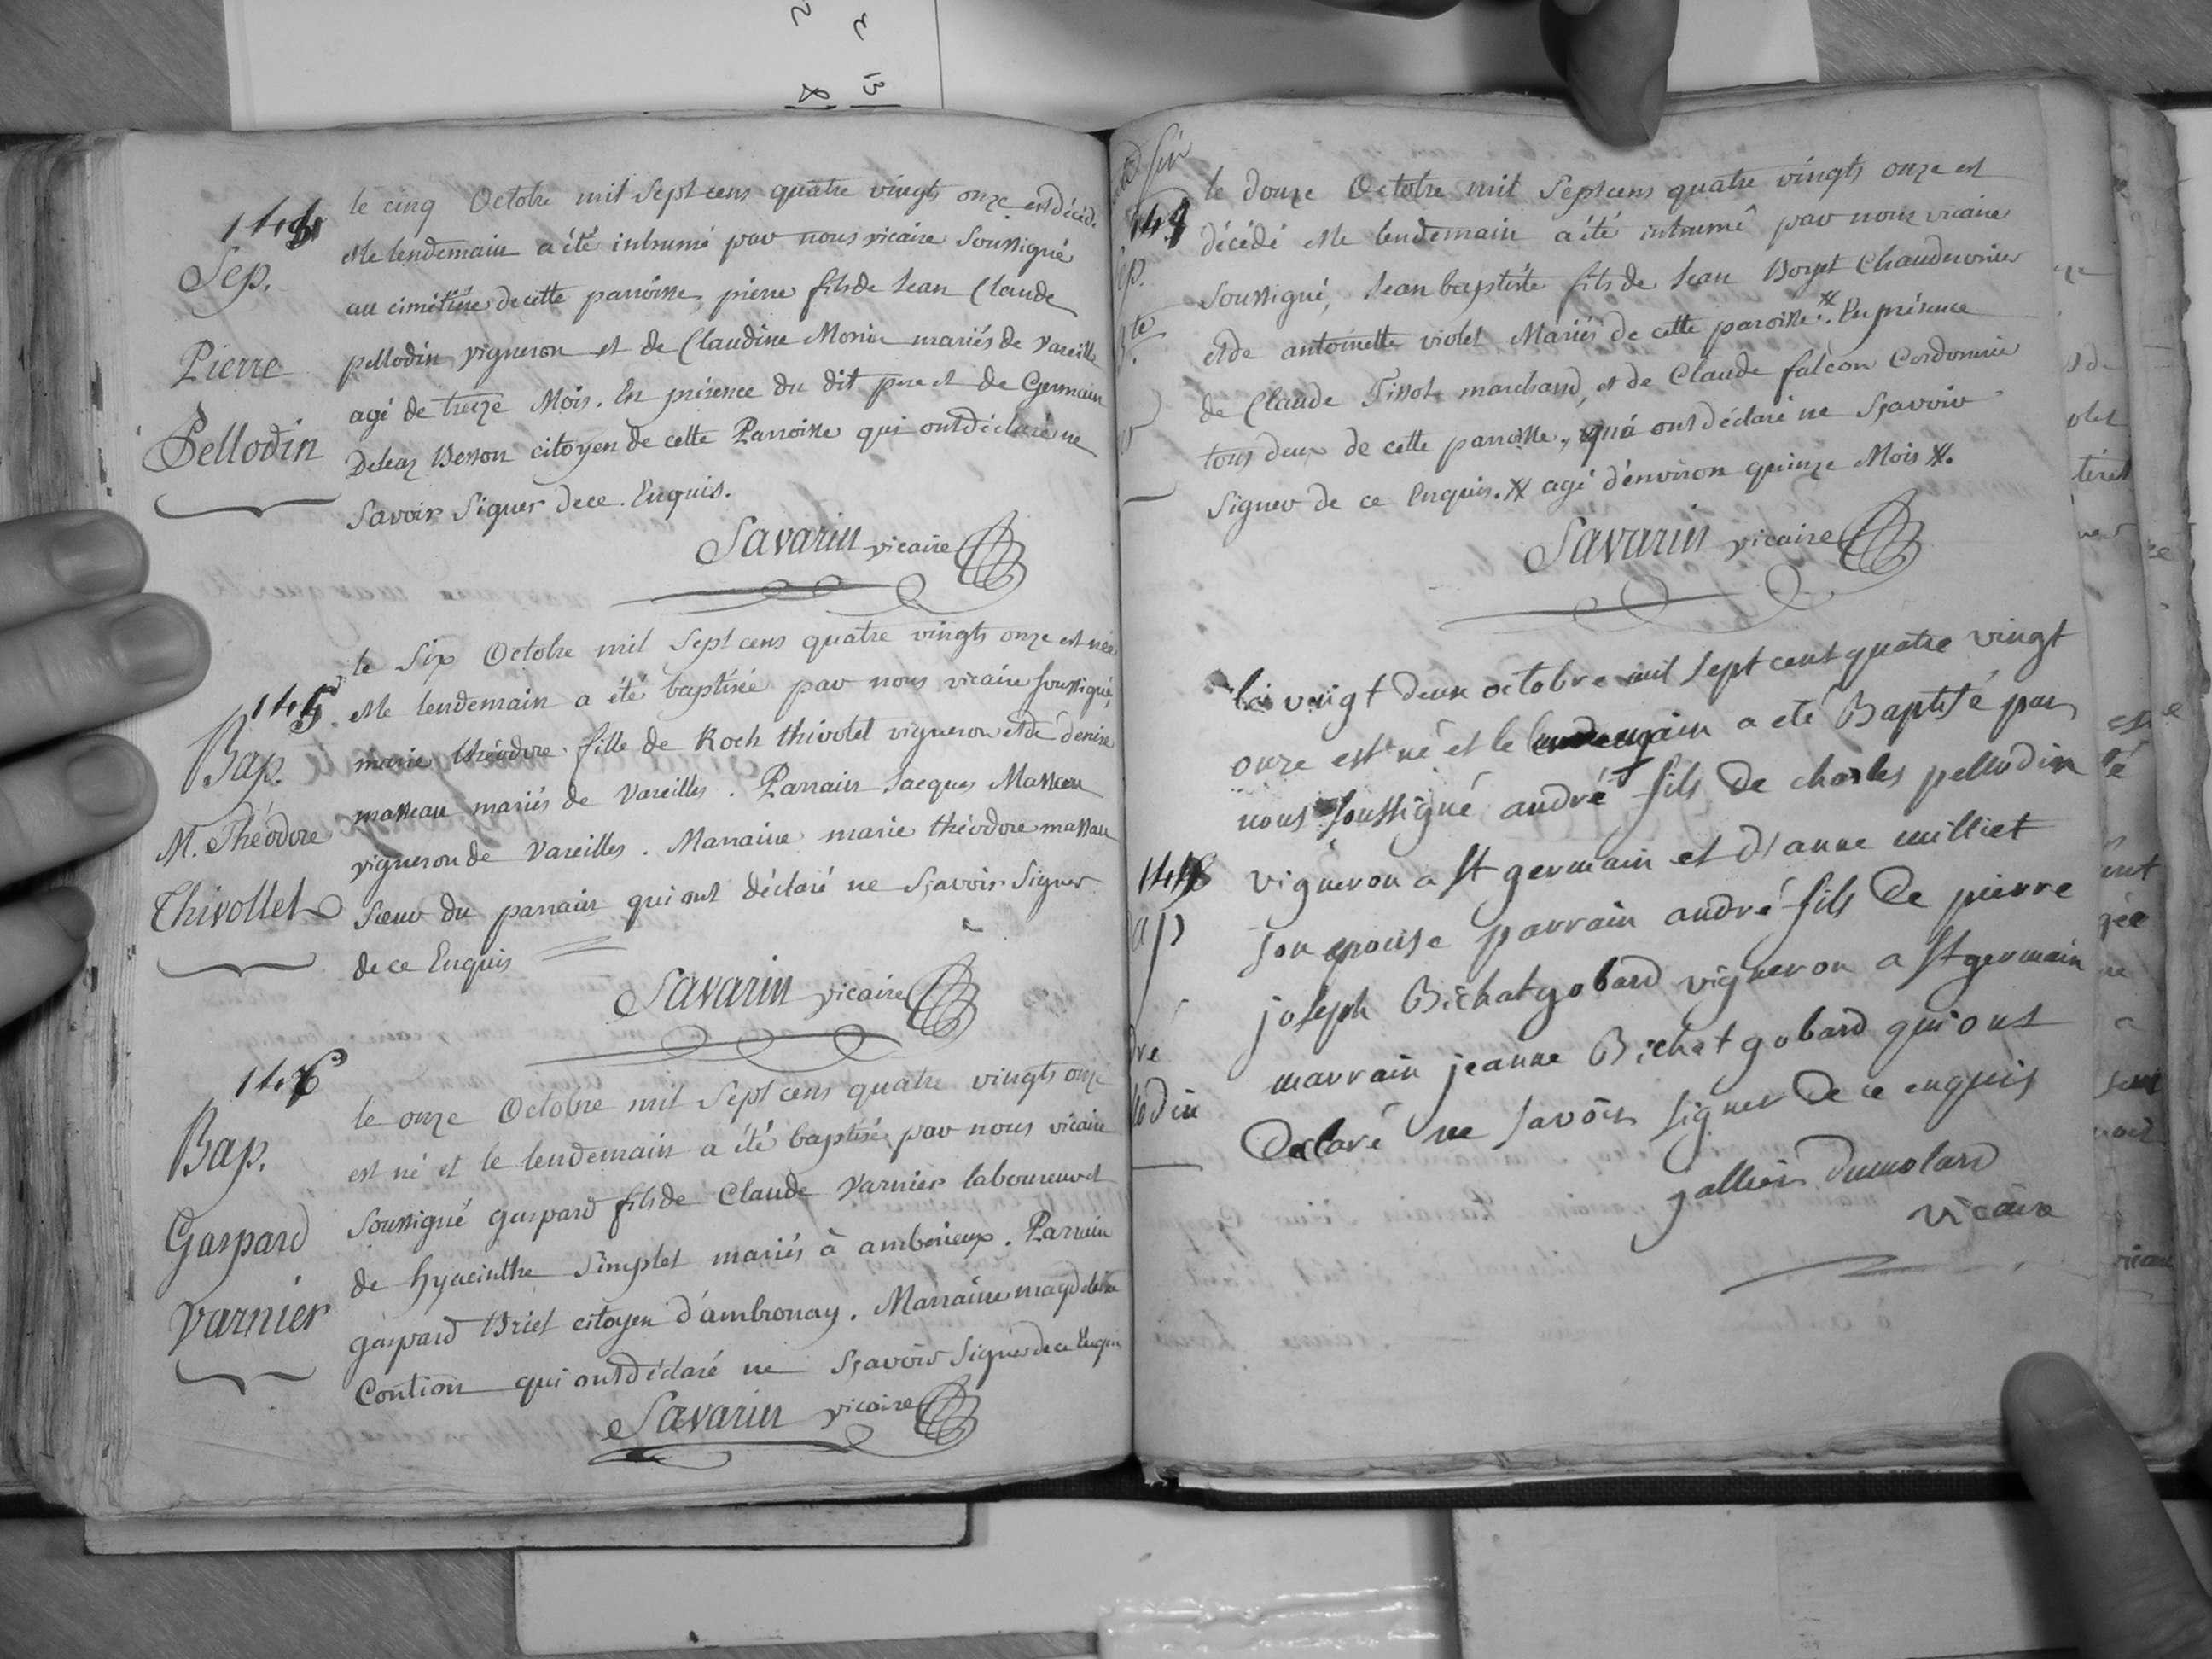 144
Sep.
Pierre
Pellodin
le cinq Octobre mil Sept cens quatre vingts onze est décédé
et le lendemain a été inhumé par nous vicaire Soussigné
au cimétière de cette parroisse, pierre fils de Jean Claude
pellodin vigneron et de Claudine Monier mariés de Vareille
agé de treize Mois. En présence du dit pere et de Germain
Deleaz Besson citoyen de cette Parroisse qui ont déclaré ne
Savoir Signer de ce. Enquis.
Savarin vicaire
145
Bap.
M. Théodore
Thivollet
le Six Octobre mil Sept cens quatre vingts onze est née
et le lendemain a été baptisée par nous vicaire soussigné,
marie théodore fille de Roch thivolet vigneron et de denise
masseau mariés de Vareilles. Parrain Jacques Masseau
vigneron de Vareilles. Marraine marie théodore massau
Sœur du parrain qui ont déclaré ne Sçavoir Signer
de ce Enquis
Savarin vicaire
146
Bap.
Gaspard
Varnier
le onze Octobre mil Sept cens quatre vingts onze
est né et le lendemain a été baptisé par nous vicaire
Soussigné gaspard fils de Claude Varnier laboureur et
de hyacinthe Simplet mariés à amberieux. Parrain
gaspard Briet citoyen d'ambronay. Marraine magdelaine
Contion qui ont déclaré ne Sçavoir Signer de ce Enquis
Savarin vicaire
le douze Octobre mil Sept cens quatre vingts onze est
décédé et le lendemain a été inhumé par nous vicaire
Soussigné, Jean baptiste fils de Jean Boyet Chauderonier
et de antoinette violet Mariés de cette paroisse. En présence
de Claude Tissot marchand, et de Claude falcon Cordonnier
tous deux de cette parroisse, qui ont déclaré ne Sçavoir
Signer de ce Enquis. X agé d'environ quinze Mois X.
Savarin vicaire
148
ap
dré
lodin
le vingt deux octobre mil sept cent quatre vingt
onze est né et le lendemain a eté Baptisé par
nous soussigné andré fils de charles pellodin
vigneron a st germain et d'anne milliet
son epouse parrain andré fils de pierre
joseph Bichatgobard vigneron a st germain
marrain jeanne Bichet gobard qui ont
declaré ne savoir signer de ce enquis
gallien dumolard
vicaire